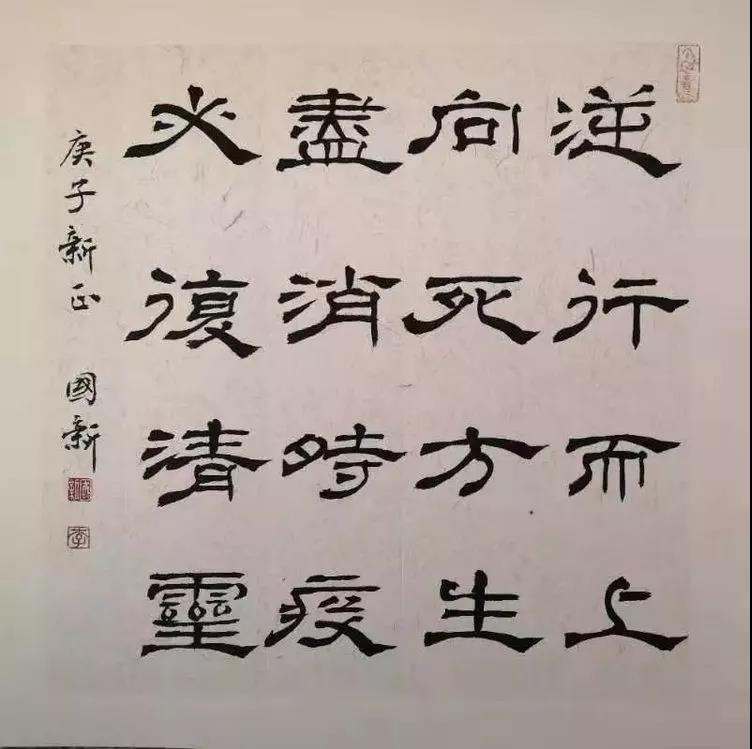 逆行而上
向死方生
盡消時疫
必復清靈
庚子新正 國新